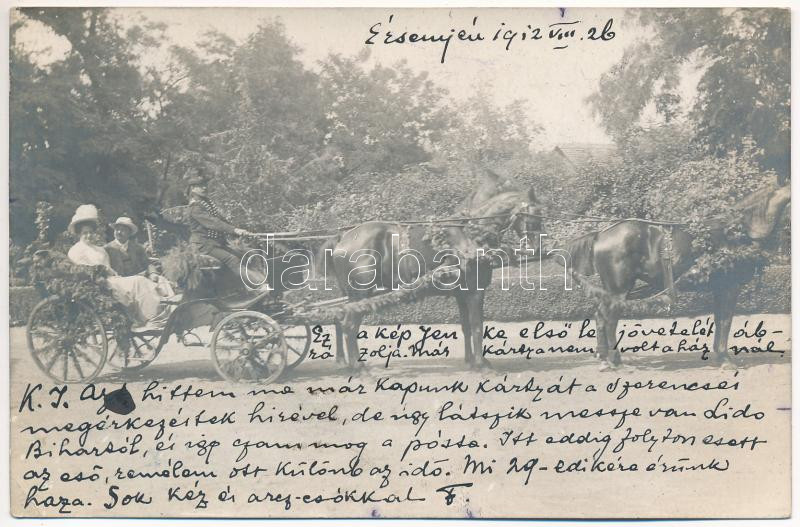 Érsemjén 1912 VIII. 26
darabanth
Ez a kép Jenke első lejövetelét áb-
rázolja. Már kártya nem volt a háznál.
K. J. Azt hittem ma már kapunk kártyát a szerencsés
megérkezéstek hírével, de úgy látszik messze van Lido
Bihartól, és így czammog a pósta. Itt eddig folyton esett
az eső, remélem ott különb az idő. Mi 29-edikére érünk
haza. Sok kéz és arcz-csókkal F.